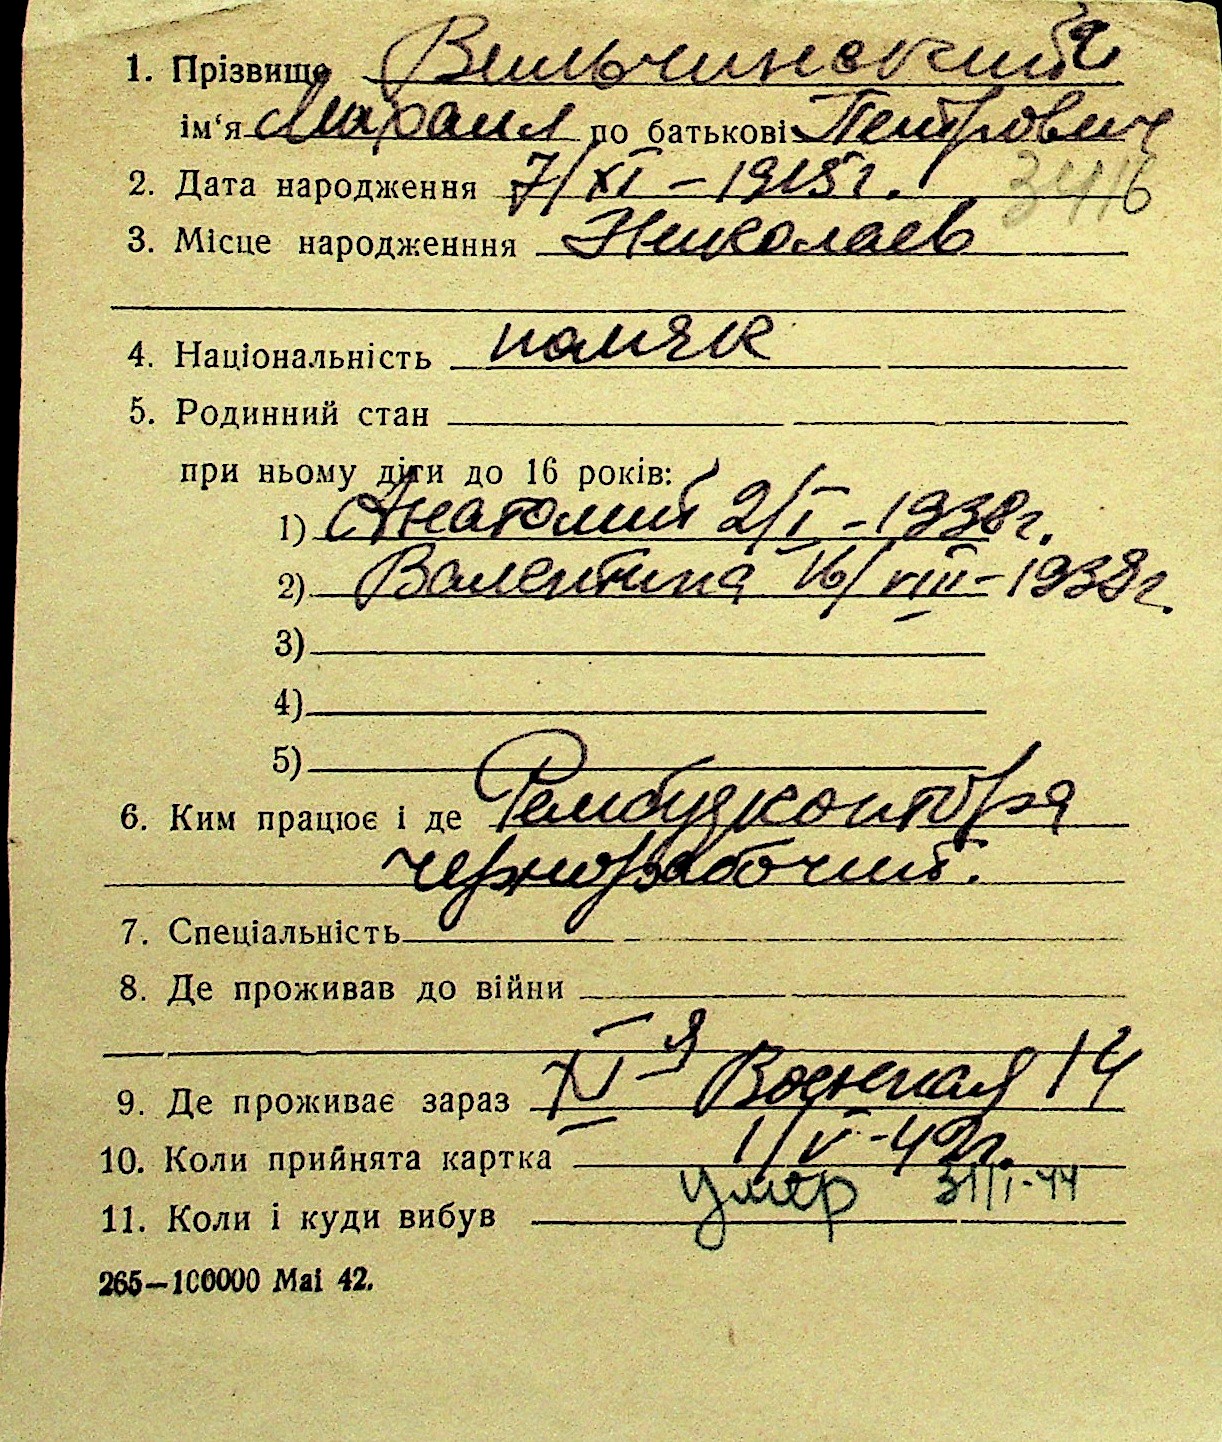 1. Прізвище Вильчинский
ім‘я Михаил по батькові Петрович
2. Дата народження 7/XI – 1915г. 3416
3. Місце народженння Николаев
4. Національність поляк
5. Родинний стан
при ньому діти до 16 років:
1) Анатолий 2/I – 1938г.
2) Валентина 16/VIII – 1939г.
3)
4)
5)
6. Ким працює і де Рембудконтора
чернорабочий.
7. Спеціальність
8. Де проживав до війни
9. Де проживає зараз Военная 14
10. Коли прийнята картка 1/V – 42г.
11. Коли і куди вибув умер 31/I-44
265—100000 Mai 42.